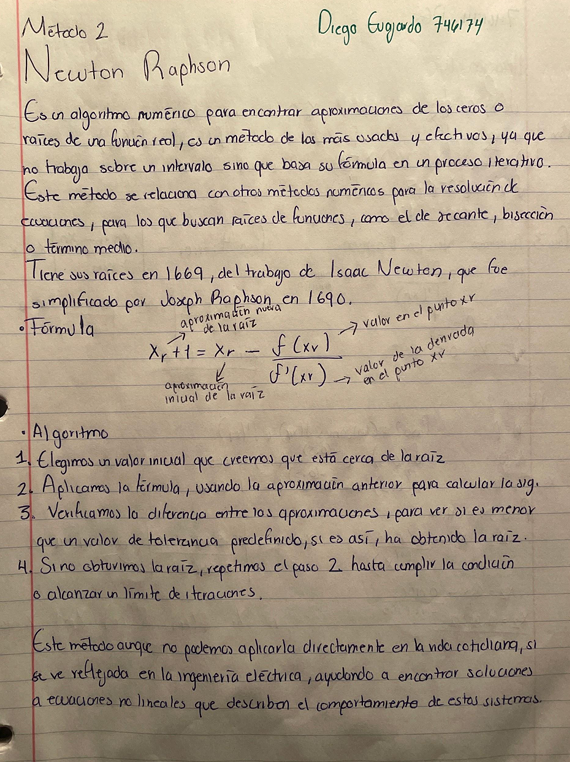 Método 2
Diego Guajardo 746174
Newton Raphson
Es un algoritmo numérico para encontrar aproximaciones de los ceros o
raíces de una función real, es un método de los más usados y efectivos, ya que
no trabaja sobre un intervalo sino que basa su fórmula en un proceso iterativo.
Este método se relaciona con otros métodos numéricos para la resolución de
ecuaciones, para los que buscan raíces de funciones, como el de secante, bisección
o término medio.
Tiene sus raíces en 1669, del trabajo de Isaac Newton, que fue
simplificado por Joseph Raphson en 1690.
• Fórmula
aproximación nueva
de la raíz
valor en el punto xr
Xr+1 = Xr - f(xr) / f'(xr)
valor de la derivada
en el punto xr
aproximación
inicial de la raíz
• Algoritmo
1. Elegimos un valor inicial que creemos que está cerca de la raíz
2. Aplicamos la fórmula, usando la aproximación anterior para calcular la sig.
3. Verificamos la diferencia entre los aproximaciones, para ver si es menor
que un valor de tolerancia predefinido, si es así, ha obtenido la raíz.
4. Si no obtuvimos la raíz, repetimos el paso 2 hasta cumplir la condición
o alcanzar un límite de iteraciones.
Este método aunque no podemos aplicarla directamente en la vida cotidiana, si
se ve reflejada en la ingeniería eléctrica, ayudando a encontrar soluciones
a ecuaciones no lineales que describen el comportamiento de estos sistemas.